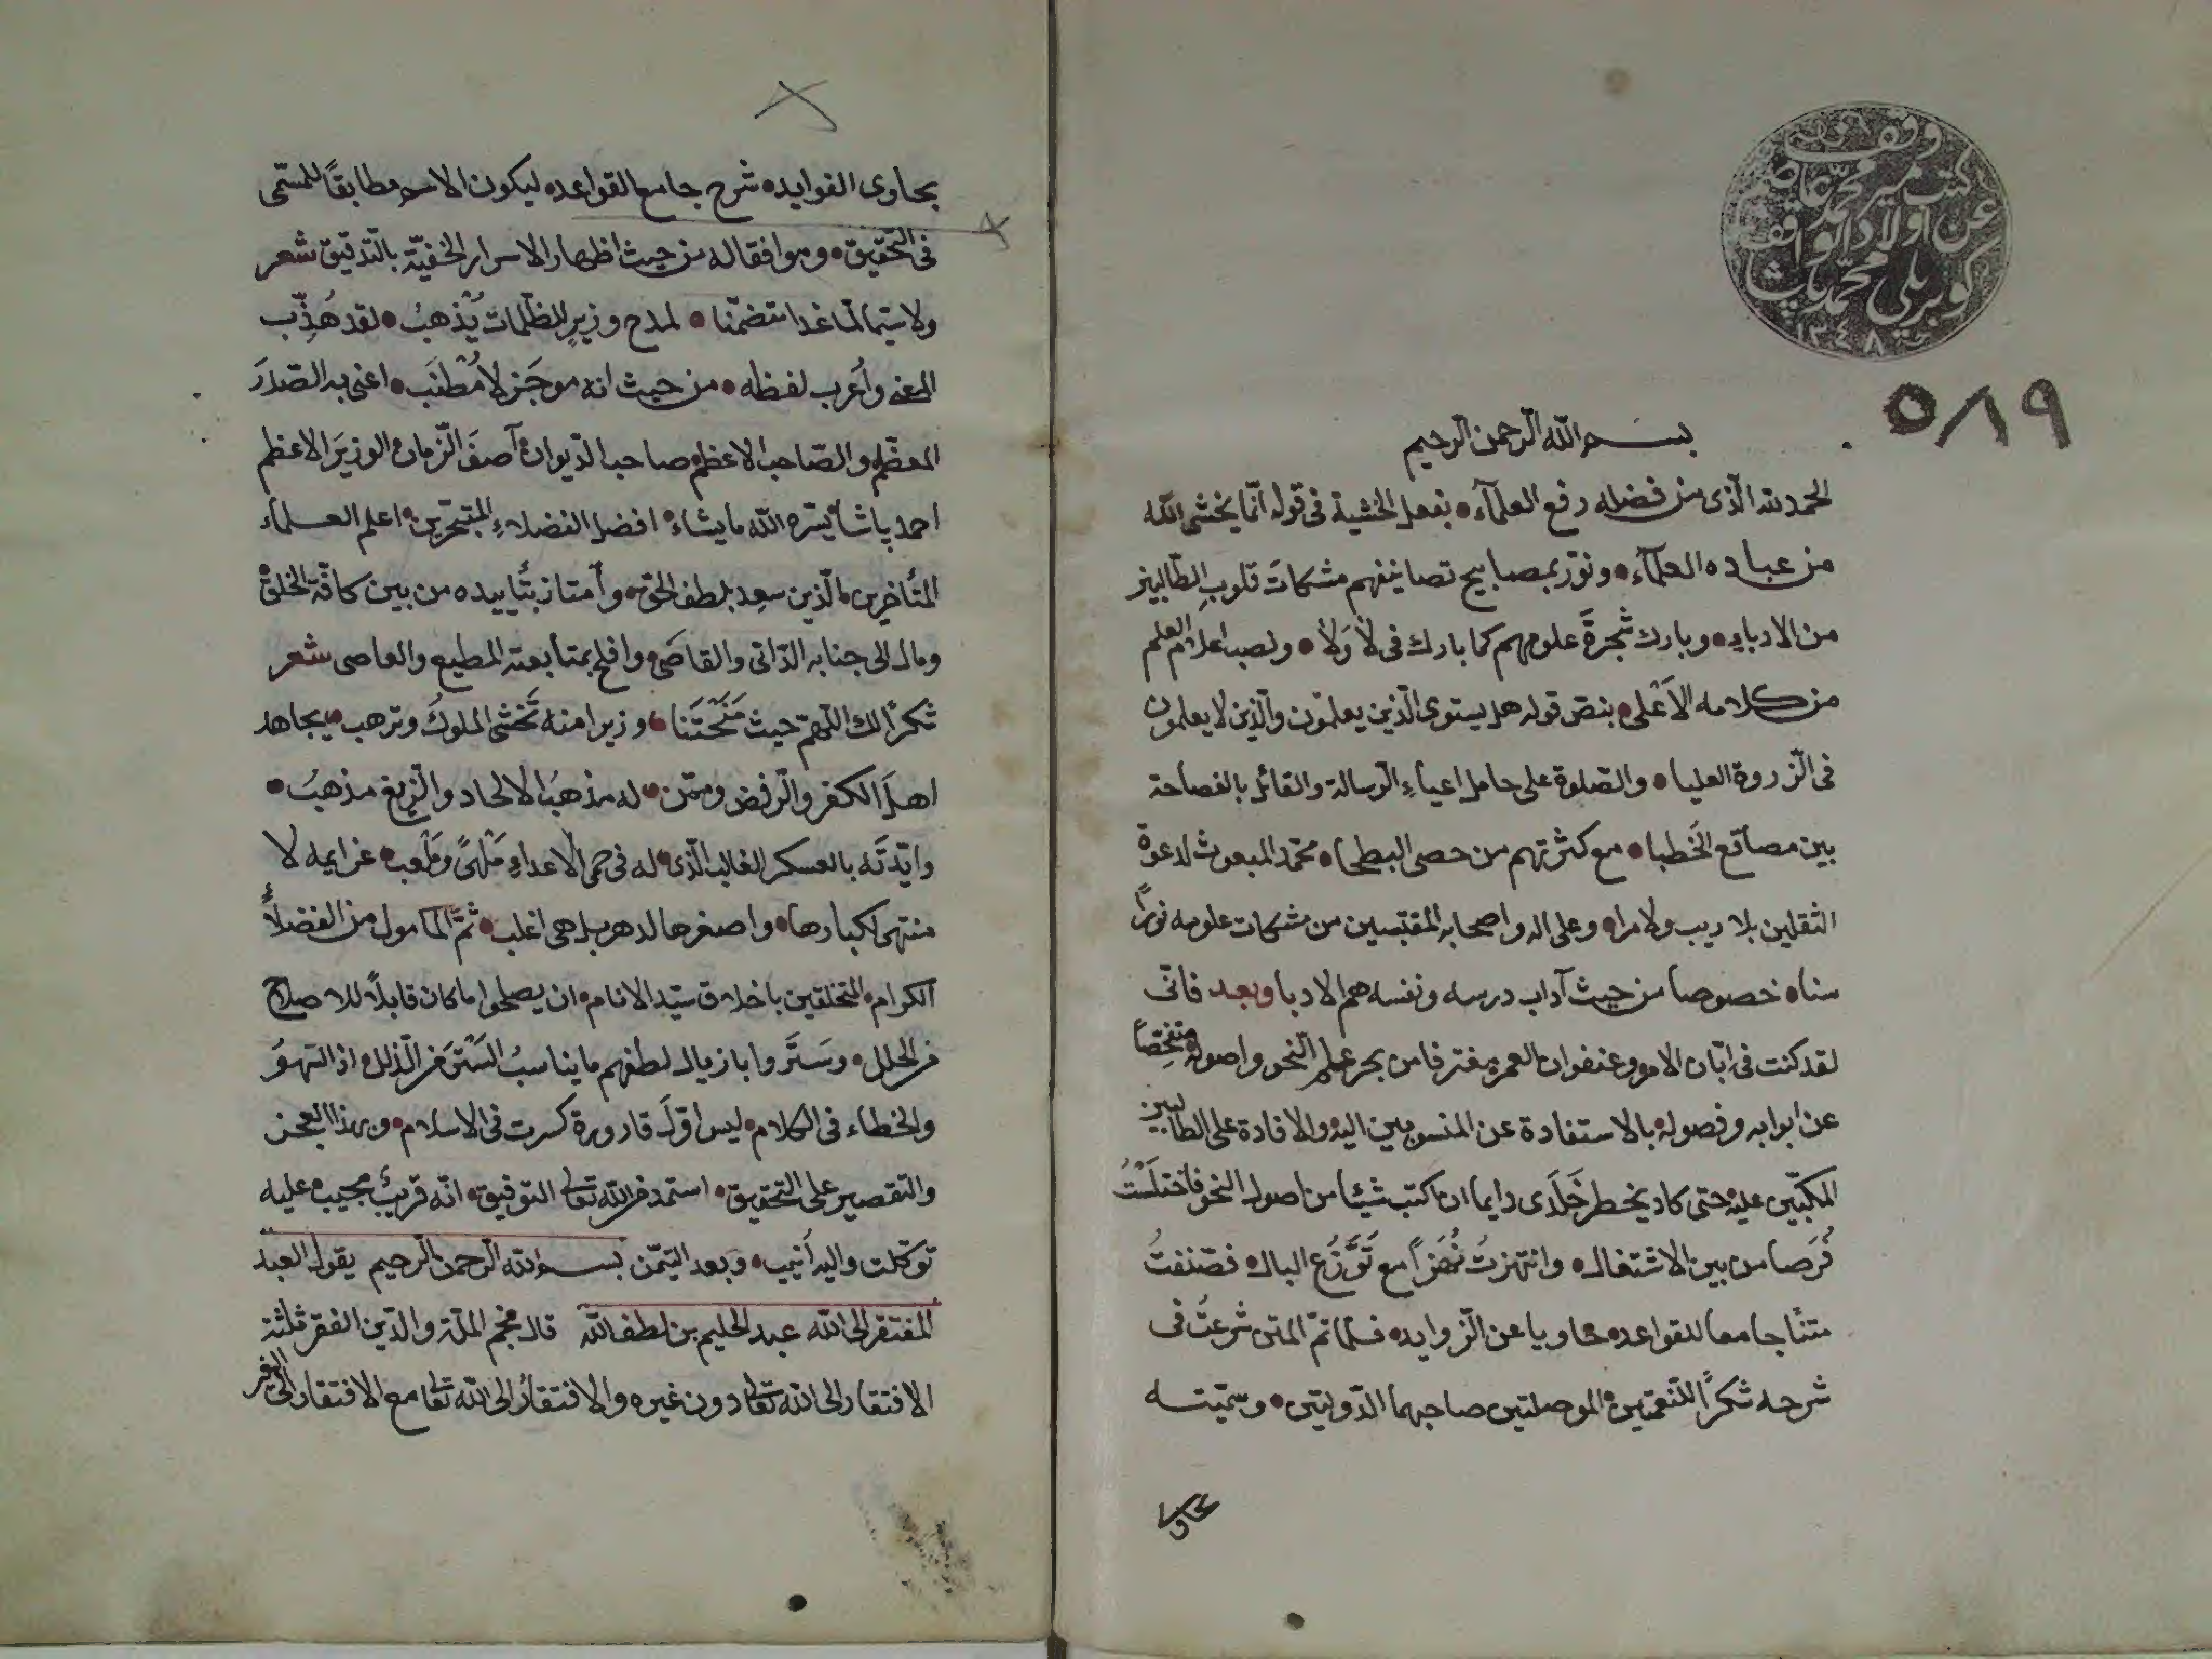 وقف
كتب مير محمد عاصم
عن اولاد الواقف
كوپريلي محمد پاشا
١٢٤٨
٥٨٩
بسم الله الرحمن الرحيم
الحمد لله الّذى من فضله رفع العلمآء • بفعل الخشية فى قوله انّما يخشى الله
من عباده العلمآء • ونوّر بمصابيح تصانيفهم مشكات قلوب الطّالبين
من الادباء • وبارك شجرةَ علومهم كما بارك فى لا ولا • ونصب اعلام العلم
من كلامه الاَعْلى • بنصّ قوله هل يستوى الّذين يعلمون والّذين لا يعلمون
فى الزروة العليا • والصّلوة على حامل اعباءِ الرسالة والقائل بالفصاحة
بين مصاقع الخُطبا • مع كثرتهم من حصى البطحا • محمّد المبعوث لدعوة
الثقلين بلا ريب ولا مرا • وعلى اله واصحابه المقتبسين من مشكات علومه نورًا
سنا • خصوصا من حيث آداب درسه ونفسه هم الادبا وبعد فانّى
لقد كنت فى ابّان الامر وعنفوان العمر مغترفا من بحر علم النّحو واصوله متفحّصًا
عن ابوابه وفصوله بالاستفادة عن المنسوبين اليه والافادة على الطالبين
المكبّين عليه حتى كاد يخطر خَلَدى دايما ان اكتب شيئا من اصول النحو فاختلَسْتُ
فُرَصا من بين الاشتغال • وانتهزتُ نُهَزاً مع تَوَزُّع البال • فصنّفتُ
متنًا جامعا للقواعد • حاويا عن الزوايد • فلمّا تمّ المتن شرعتُ فى
شرحه شكرًا للنّعمتين الموصلتين صاحبهما الدّولتين • وسمّيته
بحاوى الفوايد • شرح جامع القواعد • ليكون الاسم مطابقًا للمسمّى
فى التّحقيق • وموافقا له من حيث اظهار الاسرار الخفيّة بالتدقيق شعر
ولا سيّما لمّا غدا متضمّنا • لمدح وزيرٍ للظّلمات يُذهبُ • لقد هُذِّب
المعنى واُعرب لفظه • من حيث انه موجَز لا مُطنَب • اعنى به الصّدرَ
المعظّم والصّاحب الاعظم صاحب الدّيوان آصفَ الزّمان الوزيرَ الاعظم
احمد پاشا يسّره الله ما يشاء • افضل الفضلاءِ المتبحّرين • اعلم العلماء
المتأخرين الّذين سعد بلطف الحق • وامتاز بتأييده من بين كافّة الخلق
ومال الى جنابه الدّانى والقاصى وافلح بمتابعته المطيع والعاصى شعر
شكرًا لك اللّهمّ حيث مَنَحْتَنا • وزيرا منه تَخشى الملوكُ وترهب • يجاهد
اهلَ الكفر والرّفض ومن • له مذهبُ الالحاد والزيغ مذهبُ •
وايّدتَه بالعسكر الغالب الّذى • له فى حمى الاعداءِ مَلهىً ومَلعب • عزايمه لا
منتهى لكبارها • واصغرها لدهر بل هى اغلب • ثمّ المأمول من الفضلاءِ
الكرام • المتخلّقين باخلاق سيّد الانام • ان يصلحوا ما كان قابلاً للاصلاح
من الخلل • وسَتَروا باذيال لطفهم ما يناسبُ السَّتْرَ من الزّلل • اذ السّهوُ
والخطاء فى الكلام • ليس اوّلَ قارورة كسرت فى الاسلام • وبهذا العجز
والتقصير على التحقيق • استمدّ من الله تعالى التوفيق • انّه قريبٌ مجيب • عليه
توكلت واليه اُنيب • وبعد التيمّن بسم الله الرّحمن الرّحيم يقول العبد
المفتقر الى الله عبد الحليم بن لطف الله قال نجم الملّة والدّين الفقر ثلثة
الافتقار الى الله تعالى دون غيره والافتقارُ الى الله تعالى مع الافتقار الى الغير